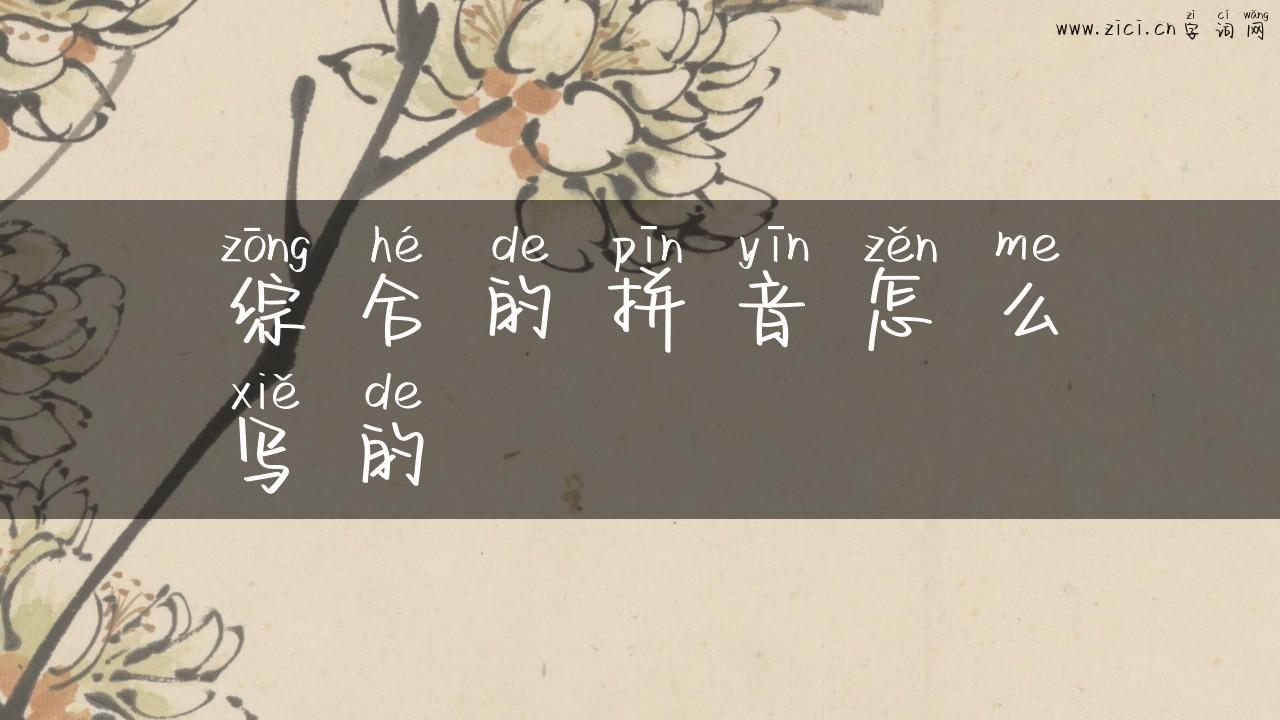 zì cí wǎng
www.zici.cn 字 词 网
zōng hé de pīn yīn zěn me
综 合 的 拼 音 怎 么
xiě de
写 的